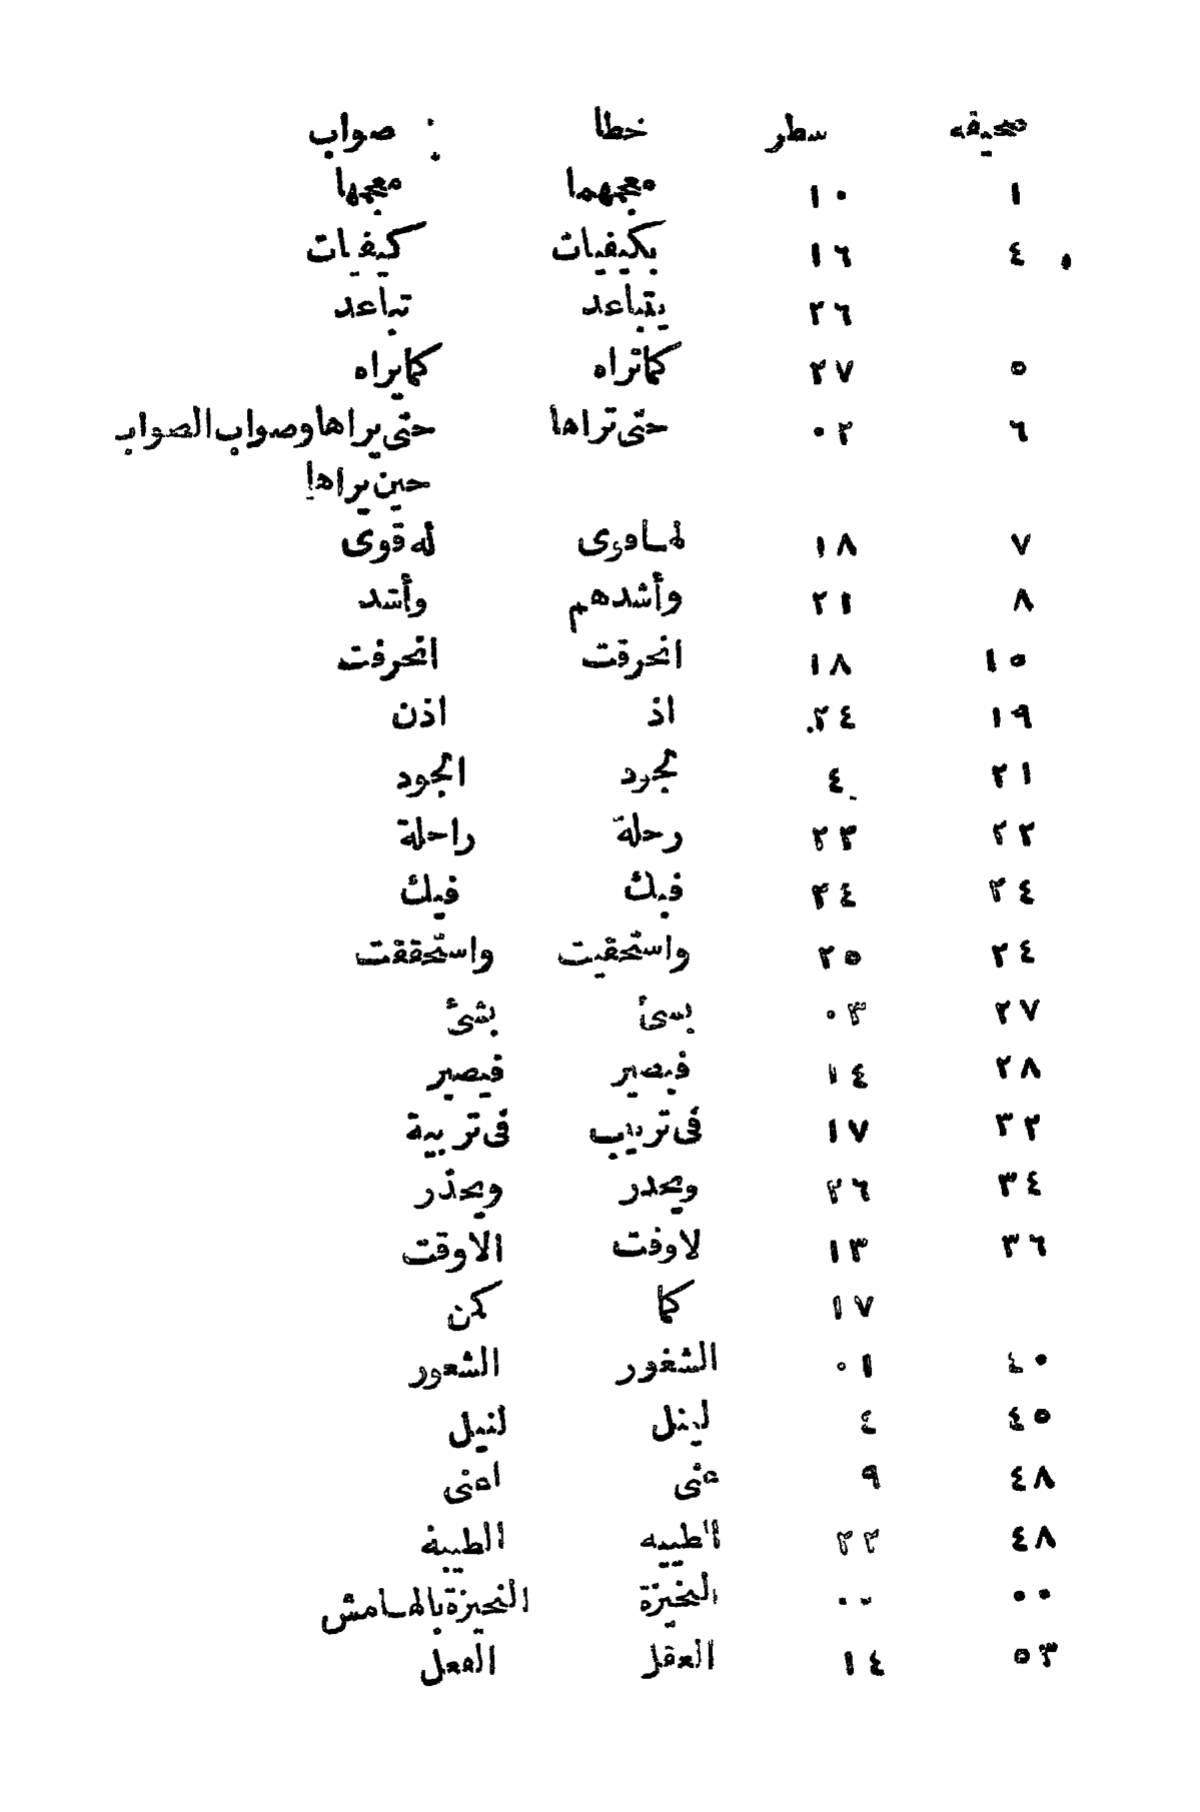 صحيفه سطر خطا صواب
١ ١٠ معجهما معجها
٤ ١٦ بكيفيات كيفيات
٢٦ يتباعد تباعد
٥ ٢٧ كماتراه كمايراه
٦ ٠٢ حتى تراها حتى يراها وصواب الصواب
حين يراها
٧ ١٨ لهاوى له قوى
٨ ٢١ وأشدهم وأشد
١٥ ١٨ انحرقت انحرفت
١٩ ٢٤ اذ اذن
٢١ ٤ لجود الجود
٢٢ ٢٣ رحلة راحلة
٢٤ ٢٤ فبك فيك
٢٤ ٢٥ واستحقيت واستحققت
٢٧ ٠٣ بسئ بشئ
٢٨ ١٤ فبصير فيصير
٣٢ ١٧ فى تربيب فى تربية
٣٤ ٢٦ ويحدر ويحذر
٣٦ ١٣ لاوفت الاوقت
١٧ كما كمن
٤٠ ٠١ الشغور الشعور
٤٥ ٤ لينل لنيل
٤٨ ٩ عنى اعنى
٤٨ ٢٢ الطيبه الطيبة
٠٠ ٠٠ النخيزة النحيزة بالهامش
٥٣ ١٤ العقل الفعل